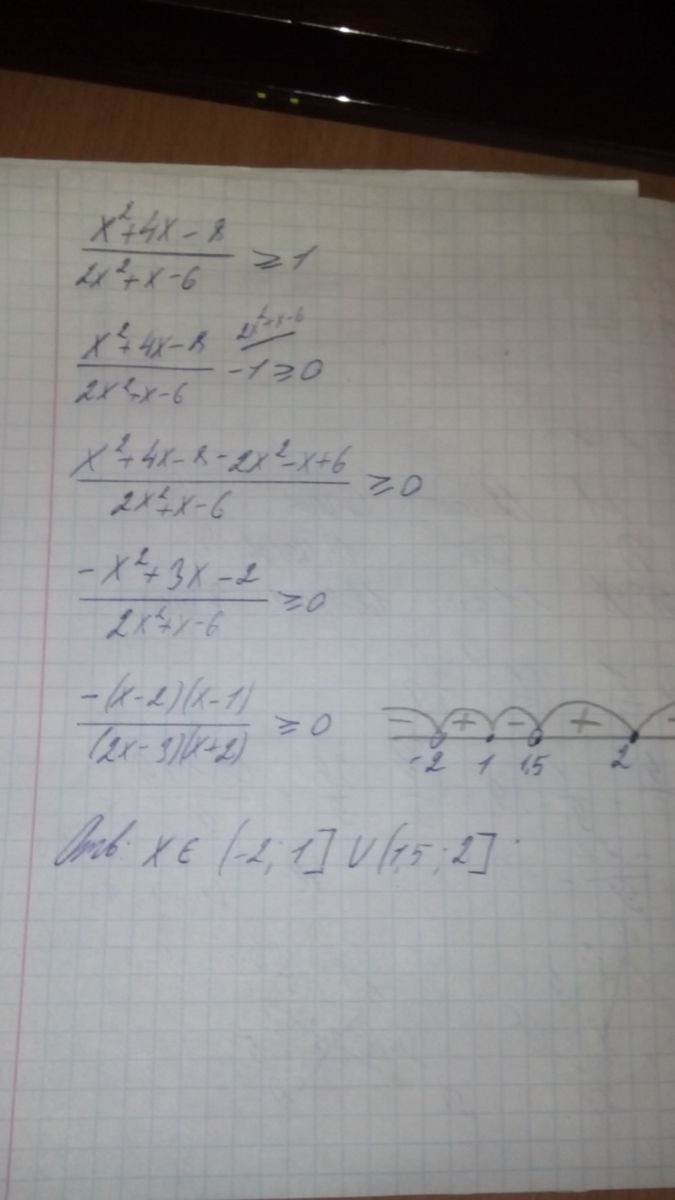 x²+4x-8
/
2x²+x-6
≥ 1
x²+4x-8
/
2x²+x-6
2x²+x-6
-1≥0
x²+4x-8-2x²-x+6
/
2x²+x-6
≥0
-x²+3x-2
/
2x²+x-6
≥0
-(x-2)(x-1)
/
(2x-3)(x+2)
≥0
- + - + -
-2 1 1,5 2
Отв: x ∈ (-2; 1] ∪ (1,5; 2]